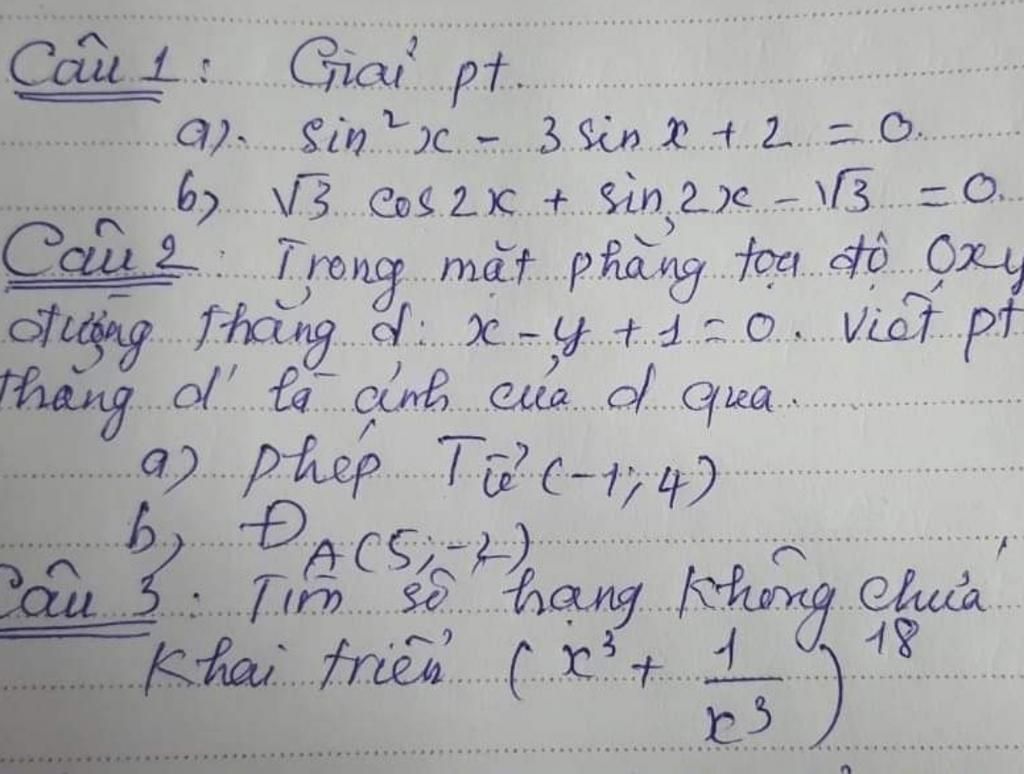 Câu 1: Giải pt.
a). sin²x - 3 sin x + 2 = 0.
b) √3 cos 2x + sin 2x - √3 = 0.
Câu 2: Trong mặt phẳng tọa độ Oxy
đường thẳng d: x - y + 1 = 0. Viết pt
thẳng d' là ảnh của d qua.
a) phép T (-1; 4)
b) Đ A(5; -2)
Câu 3: Tìm số hạng không chứa
khai triển (x³ + 1/x³)¹⁸